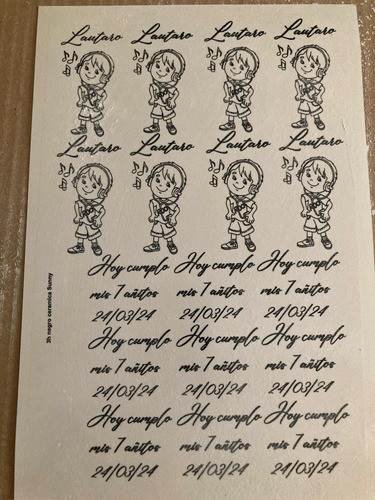 Lautaro Lautaro Lautaro Lautaro
Lautaro Lautaro Lautaro Lautaro
Hoy cumplo Hoy cumplo Hoy cumplo
mis 7 añitos mis 7 añitos mis 7 añitos
21/03/24 21/03/24 21/03/24
Hoy cumplo Hoy cumplo Hoy cumplo
mis 7 añitos mis 7 añitos mis 7 añitos
21/03/24 21/03/24 21/03/24
Hoy cumplo Hoy cumplo Hoy cumplo
mis 7 añitos mis 7 añitos mis 7 añitos
21/03/24 21/03/24 21/03/24
3h negro ceramica Sunny